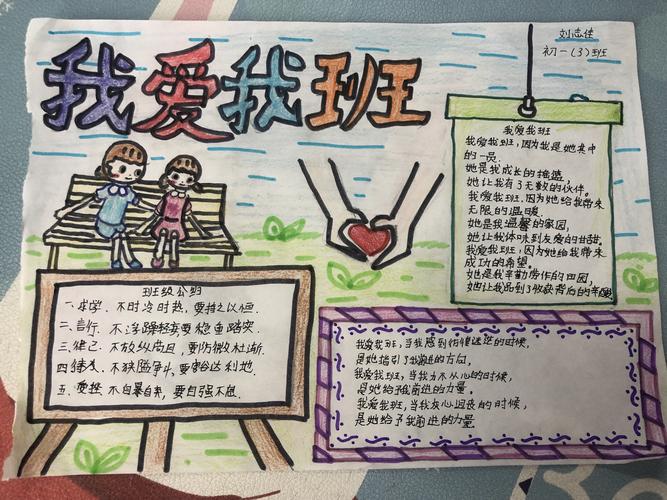 我爱我班
刘志佳
初一(3)班
我爱我班
我爱我班,因为我是她其中
的一员。
她是我成长的摇篮,
她让我有了无数的伙伴。
我爱我班,因为她给我带来
无限的温暖。
她是我温馨的家园,
她让我体味到友爱的甘甜。
我爱我班,因为她给我带来
成功的希望。
她是我辛勤劳作的田园,
她让我品到了收获背后的辛酸
班级公约
一、求学、不时冷时热,要持之以恒.
二、言行、不浮躁轻率要稳重踏实.
三、律己、不放纵苟且,要防微杜渐.
四、待友、不狭隘争斗,要豁达利他.
五、面挫、不自暴自弃,要自强不息.
我爱我班,当我感到彷徨迷茫的时候,
是她指引了我前进的方向。
我爱我班,当我力不从心的时候,
是她给予我前进的力量。
我爱我班,当我灰心沮丧的时候,
是她给予我前进的力量